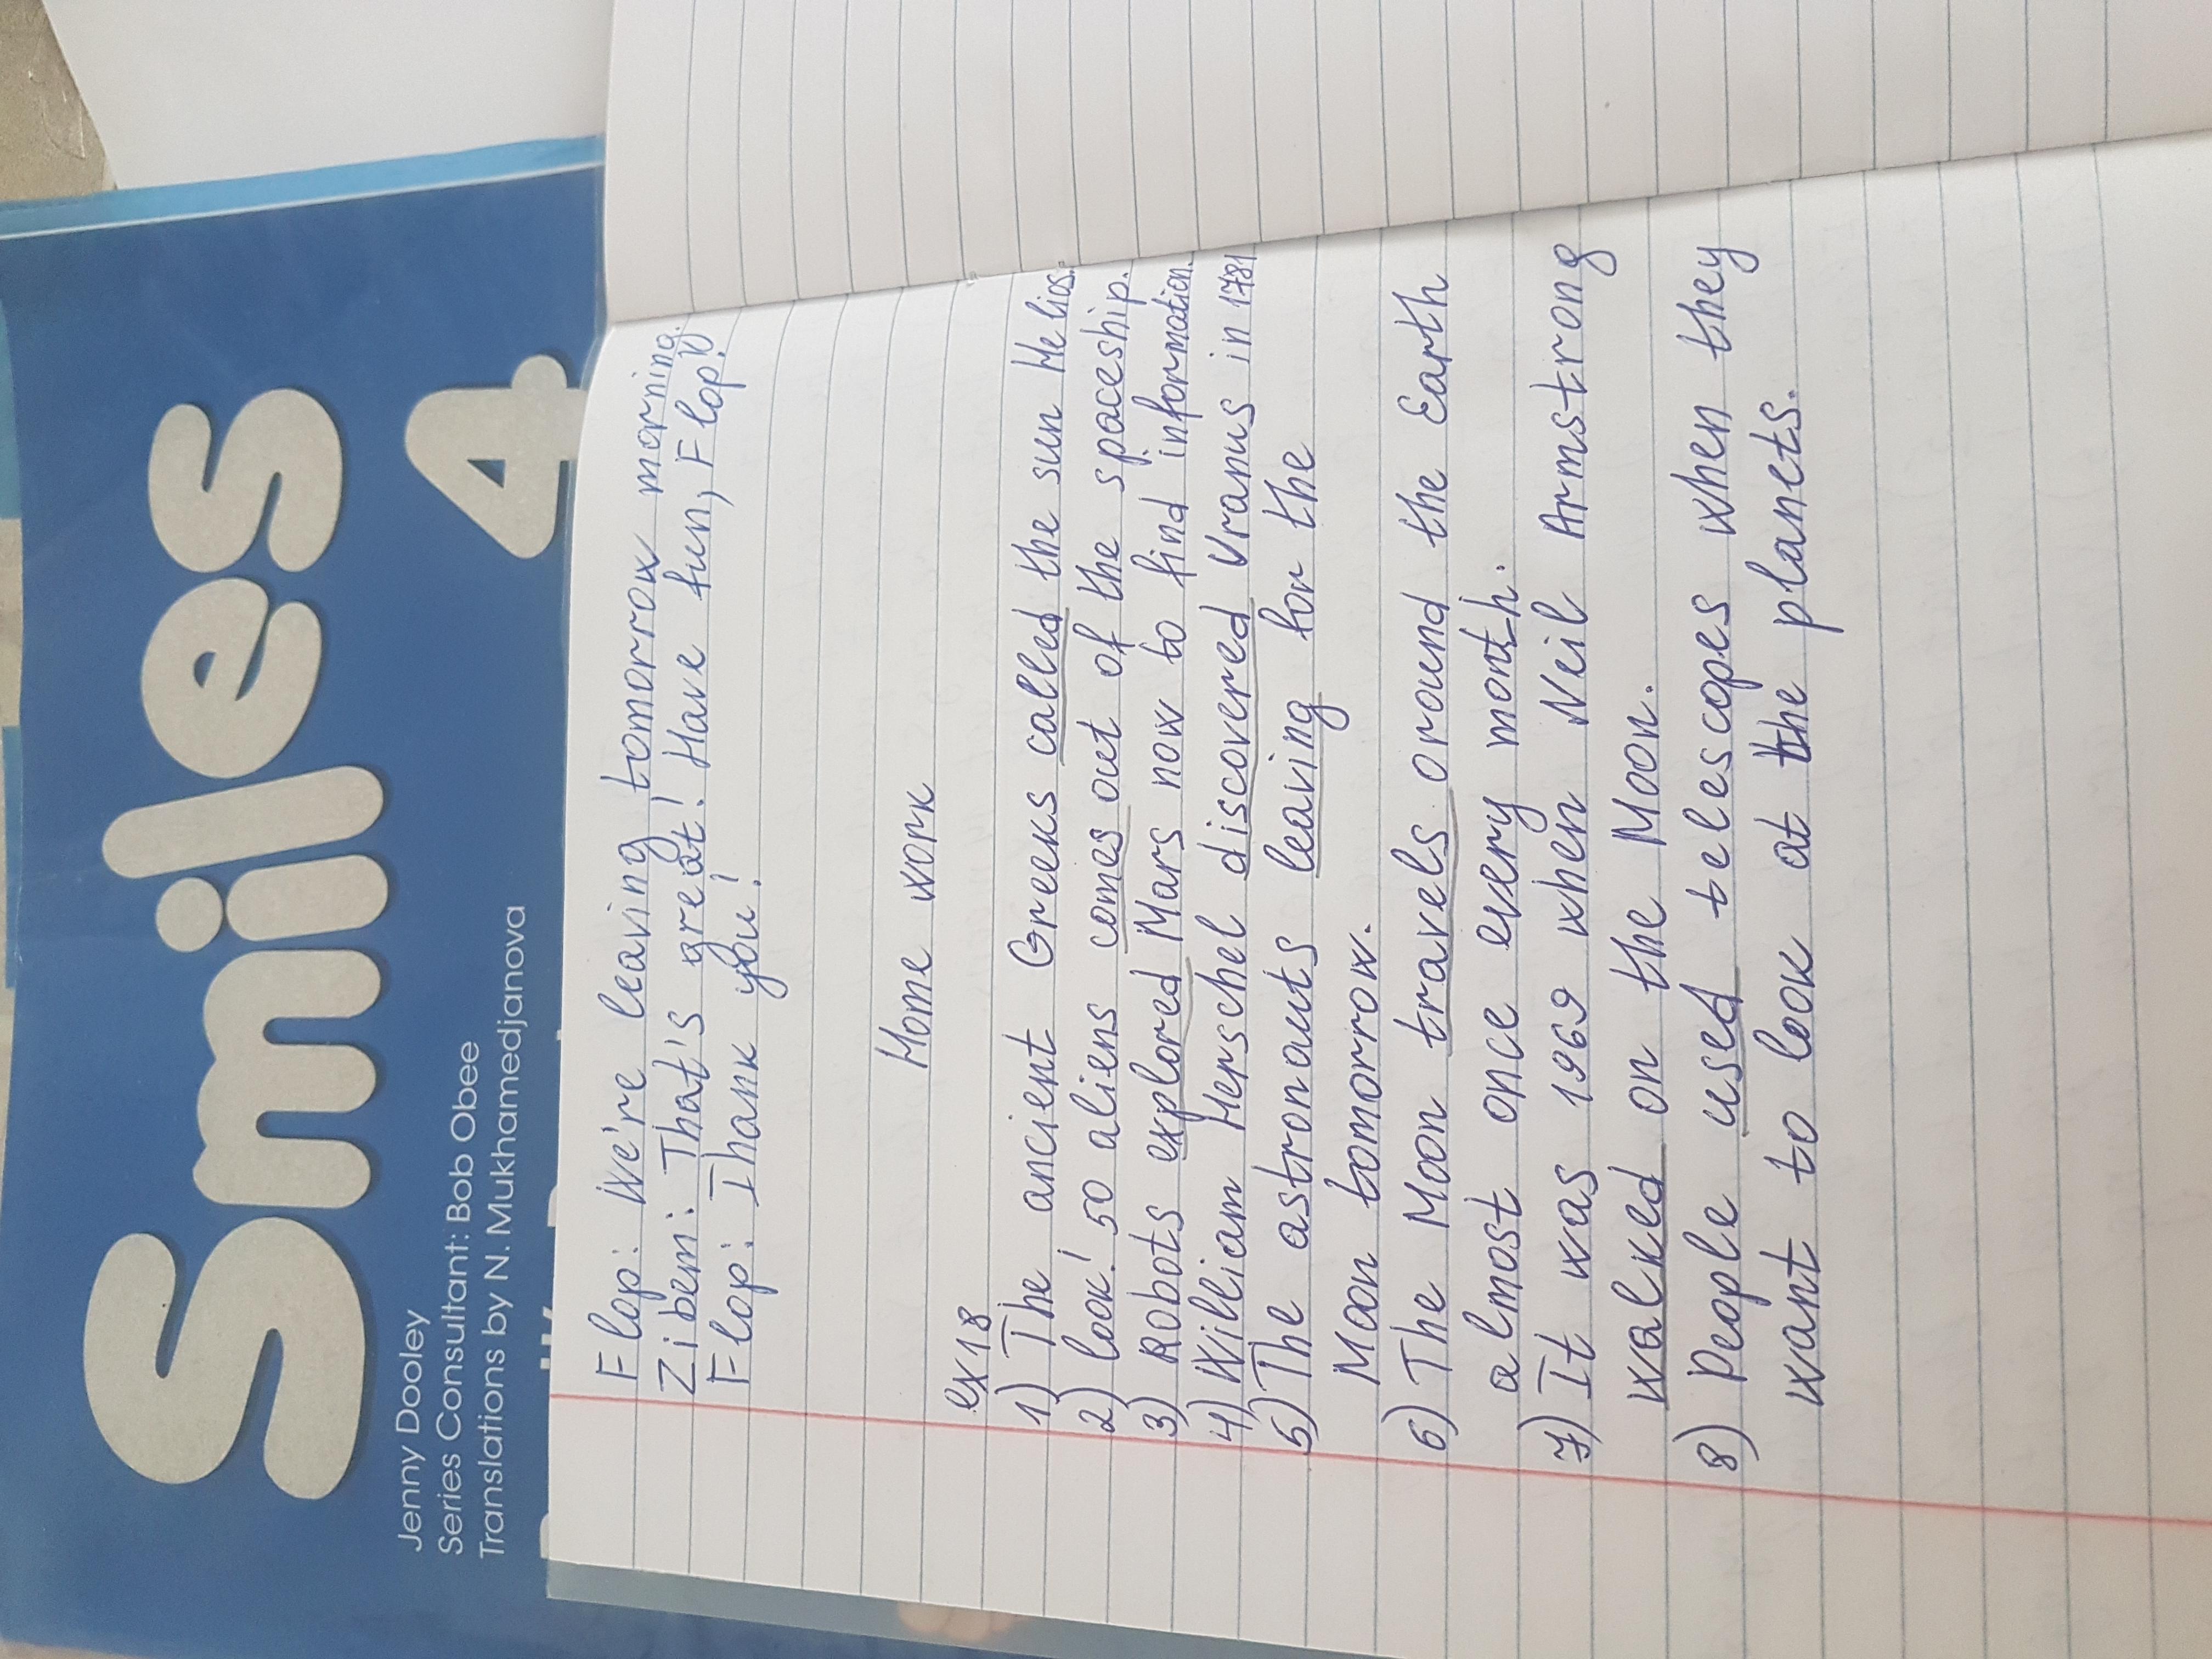 Smiles
4
Jenny Dooley
Series Consultant: Bob Obee
Translations by N. Mukhamedjanova
Flop: We're leaving tomorrow morning.
Zibem: That's great! Have fun, Flop!
Flop: Thank you!
Home work
ex18
1) The ancient Greeks called the sun Helios.
2) look! 50 aliens comes out of the spaceship.
3) Robots explored Mars now to find information.
4) William Herschel discovered Uranus in 1781
5) The astronauts leaving for the
Moon tomorrow.
6) The Moon travels around the Earth
almost once every month.
7) It was 1969 when Neil Armstrong
walked on the Moon.
8) People used telescopes when they
want to look at the planets.